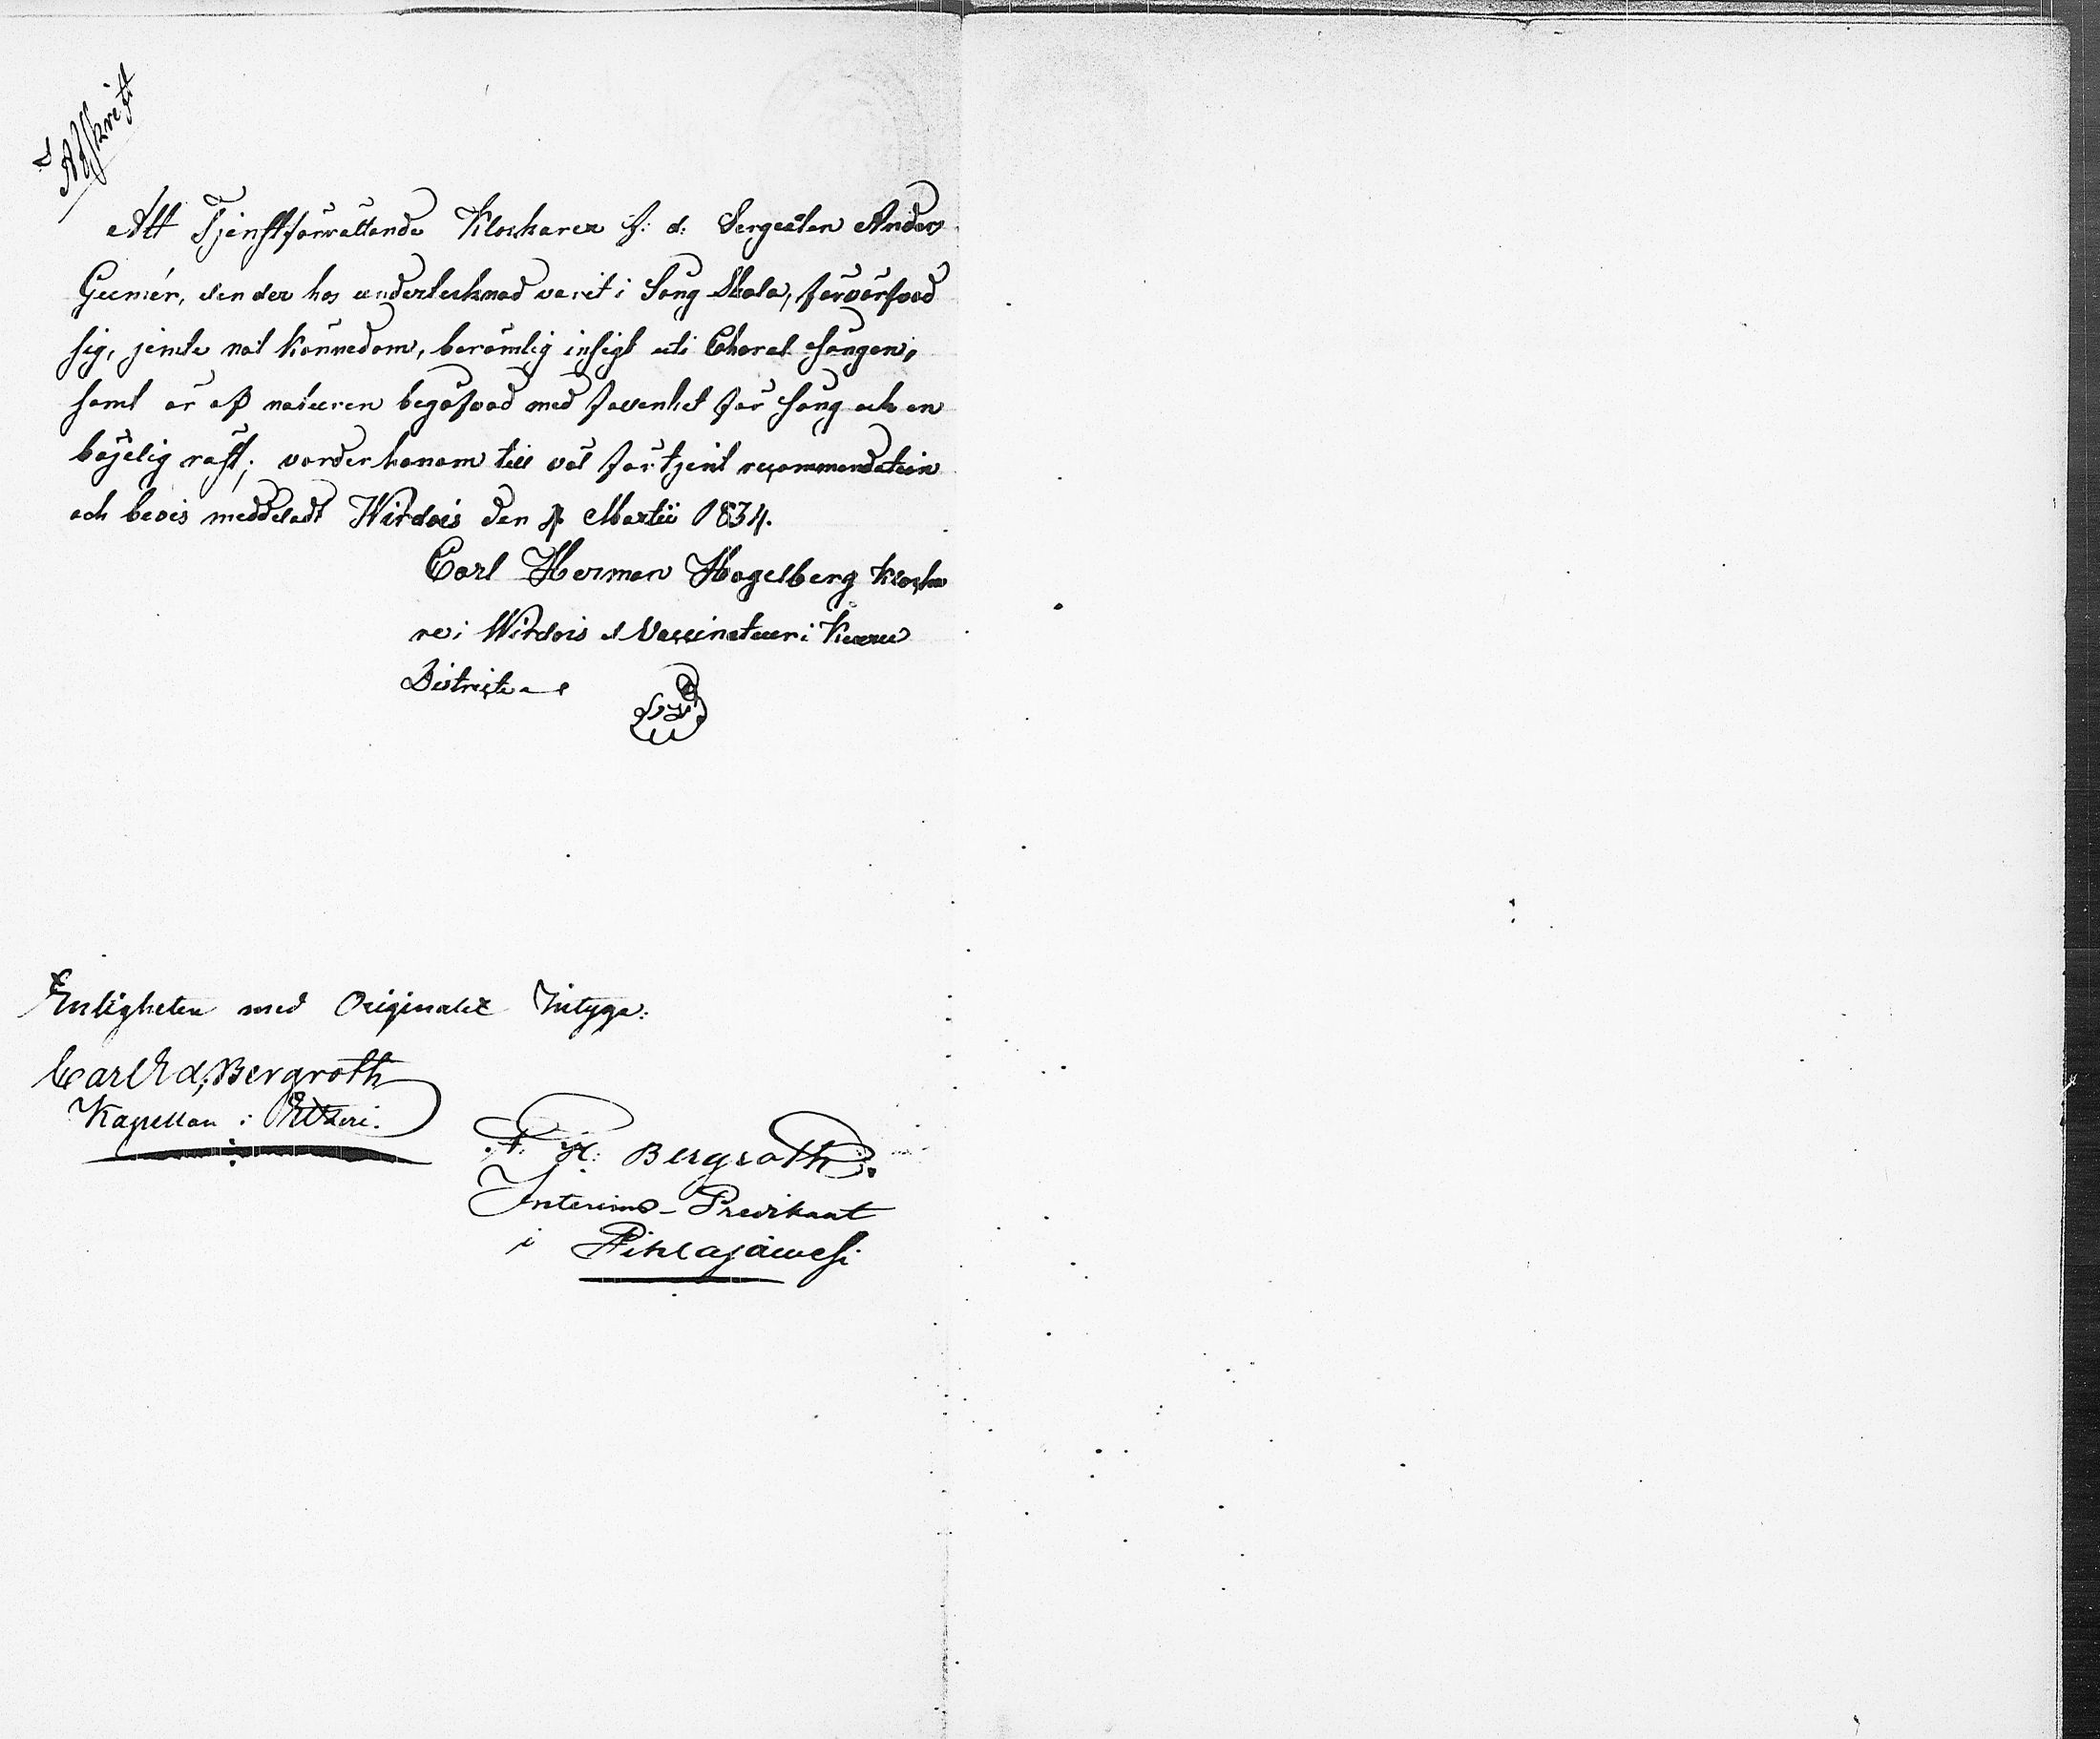 Afskrift
Att Tjenstförrättande Klockaren f: d: Sergeáten Anders
Gumér, den der hos undertecknad varit i Sång Skola, förvärfvad
sig, jemte not kännedom, berömlig insigt uti Choral sången,
samt är af naturen begåfvad med favenhet för sång och en
böjelig röst; varder honom till väl förtjent recommendation
och bevis meddeladt Wirdois den 4 Martii 1834.
Carl Herman Hagelberg Klocka
re i Wirdois Vaccinateur i Kuru
District
Enligheten med Originalet Intyga:
Carl Ed; Bergroth
Kapellan i Etseri.
F. H: Bergroth.
Interims-Predikant
i Pihlajawesi